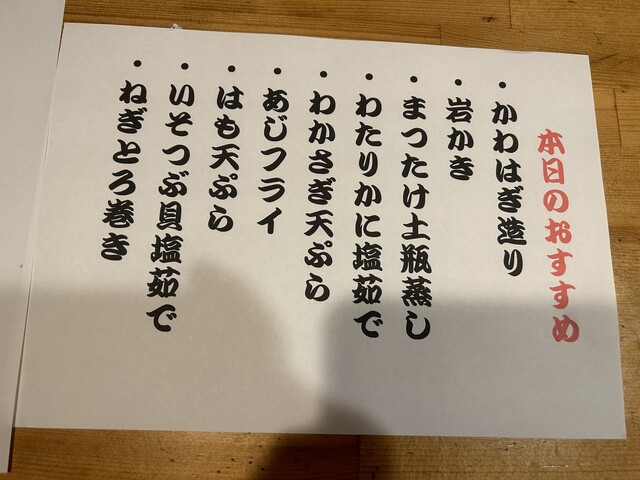 本日のおすすめ
・かわはぎ造り
・岩かき
・まつたけ土瓶蒸し
・わたりかに塩茹で
・わかさぎ天ぷら
・あじフライ
・はも天ぷら
・いそつぶ貝塩茹で
・ねぎとろ巻き